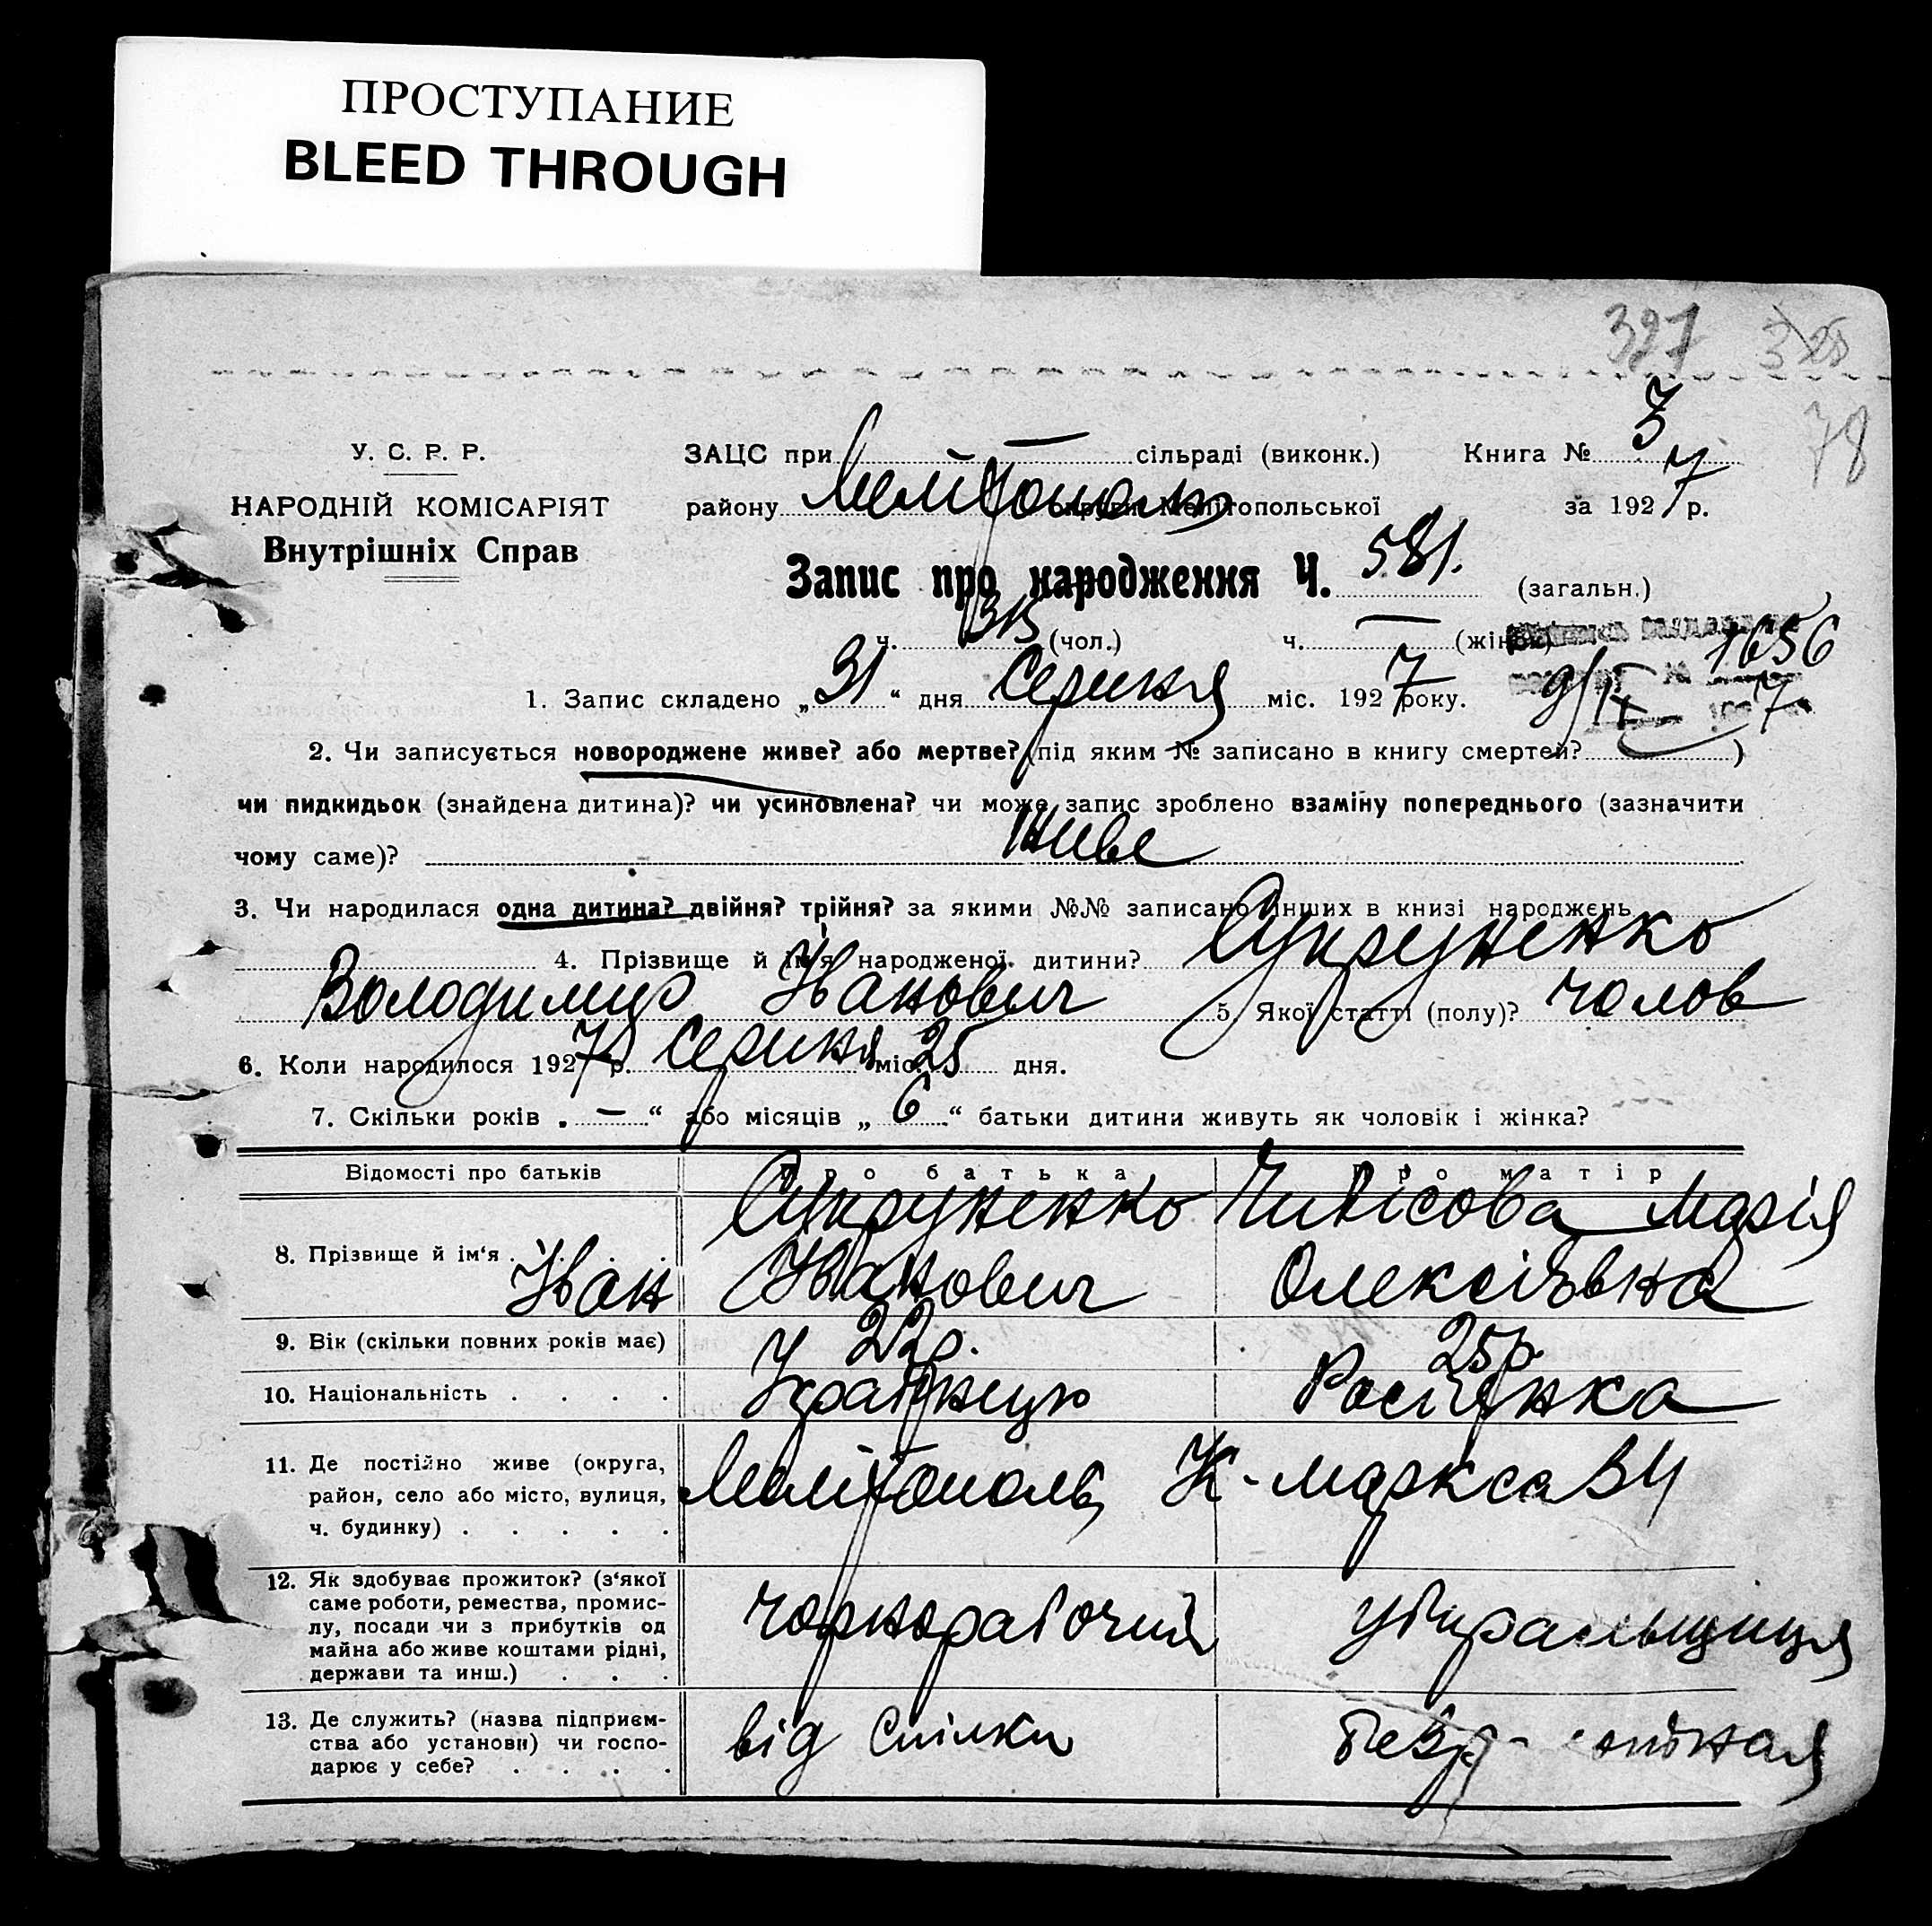 ПРОСТУПАНИЕ
BLEED THROUGH
327 325
78
У. С. Р. Р.
НАРОДНІЙ КОМІСАРІЯТ
Внутрішніх Справ
ЗАЦС при — сільраді (виконк.) Книга № 3
району Мелітополь округи Мелітопольської за 1927 р.
Запис про народження Ч. 581. (загальн.)
ч. 315 (чол.) ч. — (жінок)
1656
1. Запис складено „31“ дня Серпня міс. 1927 року. 9/IX 7
2. Чи записується новороджене живе? або мертве? (під яким № записано в книгу смертей? )
чи пидкидьок (знайдена дитина)? чи усиновлена? чи може запис зроблено взаміну попереднього (зазначити
чому саме)? Живе
3. Чи народилася одна дитина? двійня? трійня? за якими №№ записано інших в книзі народжень
4. Прізвище й ім'я народженої дитини? Супруненко
Володимир Іванович 5. Якої статті (полу)? чолов
6. Коли народилося 1927 р. Серпня міс. 25 дня.
7. Скільки років „—“ або місяців „6“ батьки дитини живуть як чоловік і жінка?
Відомості про батьків Про батька Про матір
8. Прізвище й ім'я . . . . Супруненко Марія
Іван Іванович Олексіївна
9. Вік (скільки повних років має) 22 р. 25 р.
10. Національність . . . . Українець Росіянка
11. Де постійно живе (округа,
район, село або місто, вулиця,
ч. будинку) . . . . . Мелітополь К-Маркса 34
12. Як здобуває прожиток? (з'якої
саме роботи, ремества, промис-
лу, посади чи з прибутків од
майна або живе коштами рідні,
держави та инш.) . . . чорнорабочий убиральщиця
13. Де служить? (назва підприєм-
ства або установи) чи госпо-
дарює у себе? . . . . від Спілки